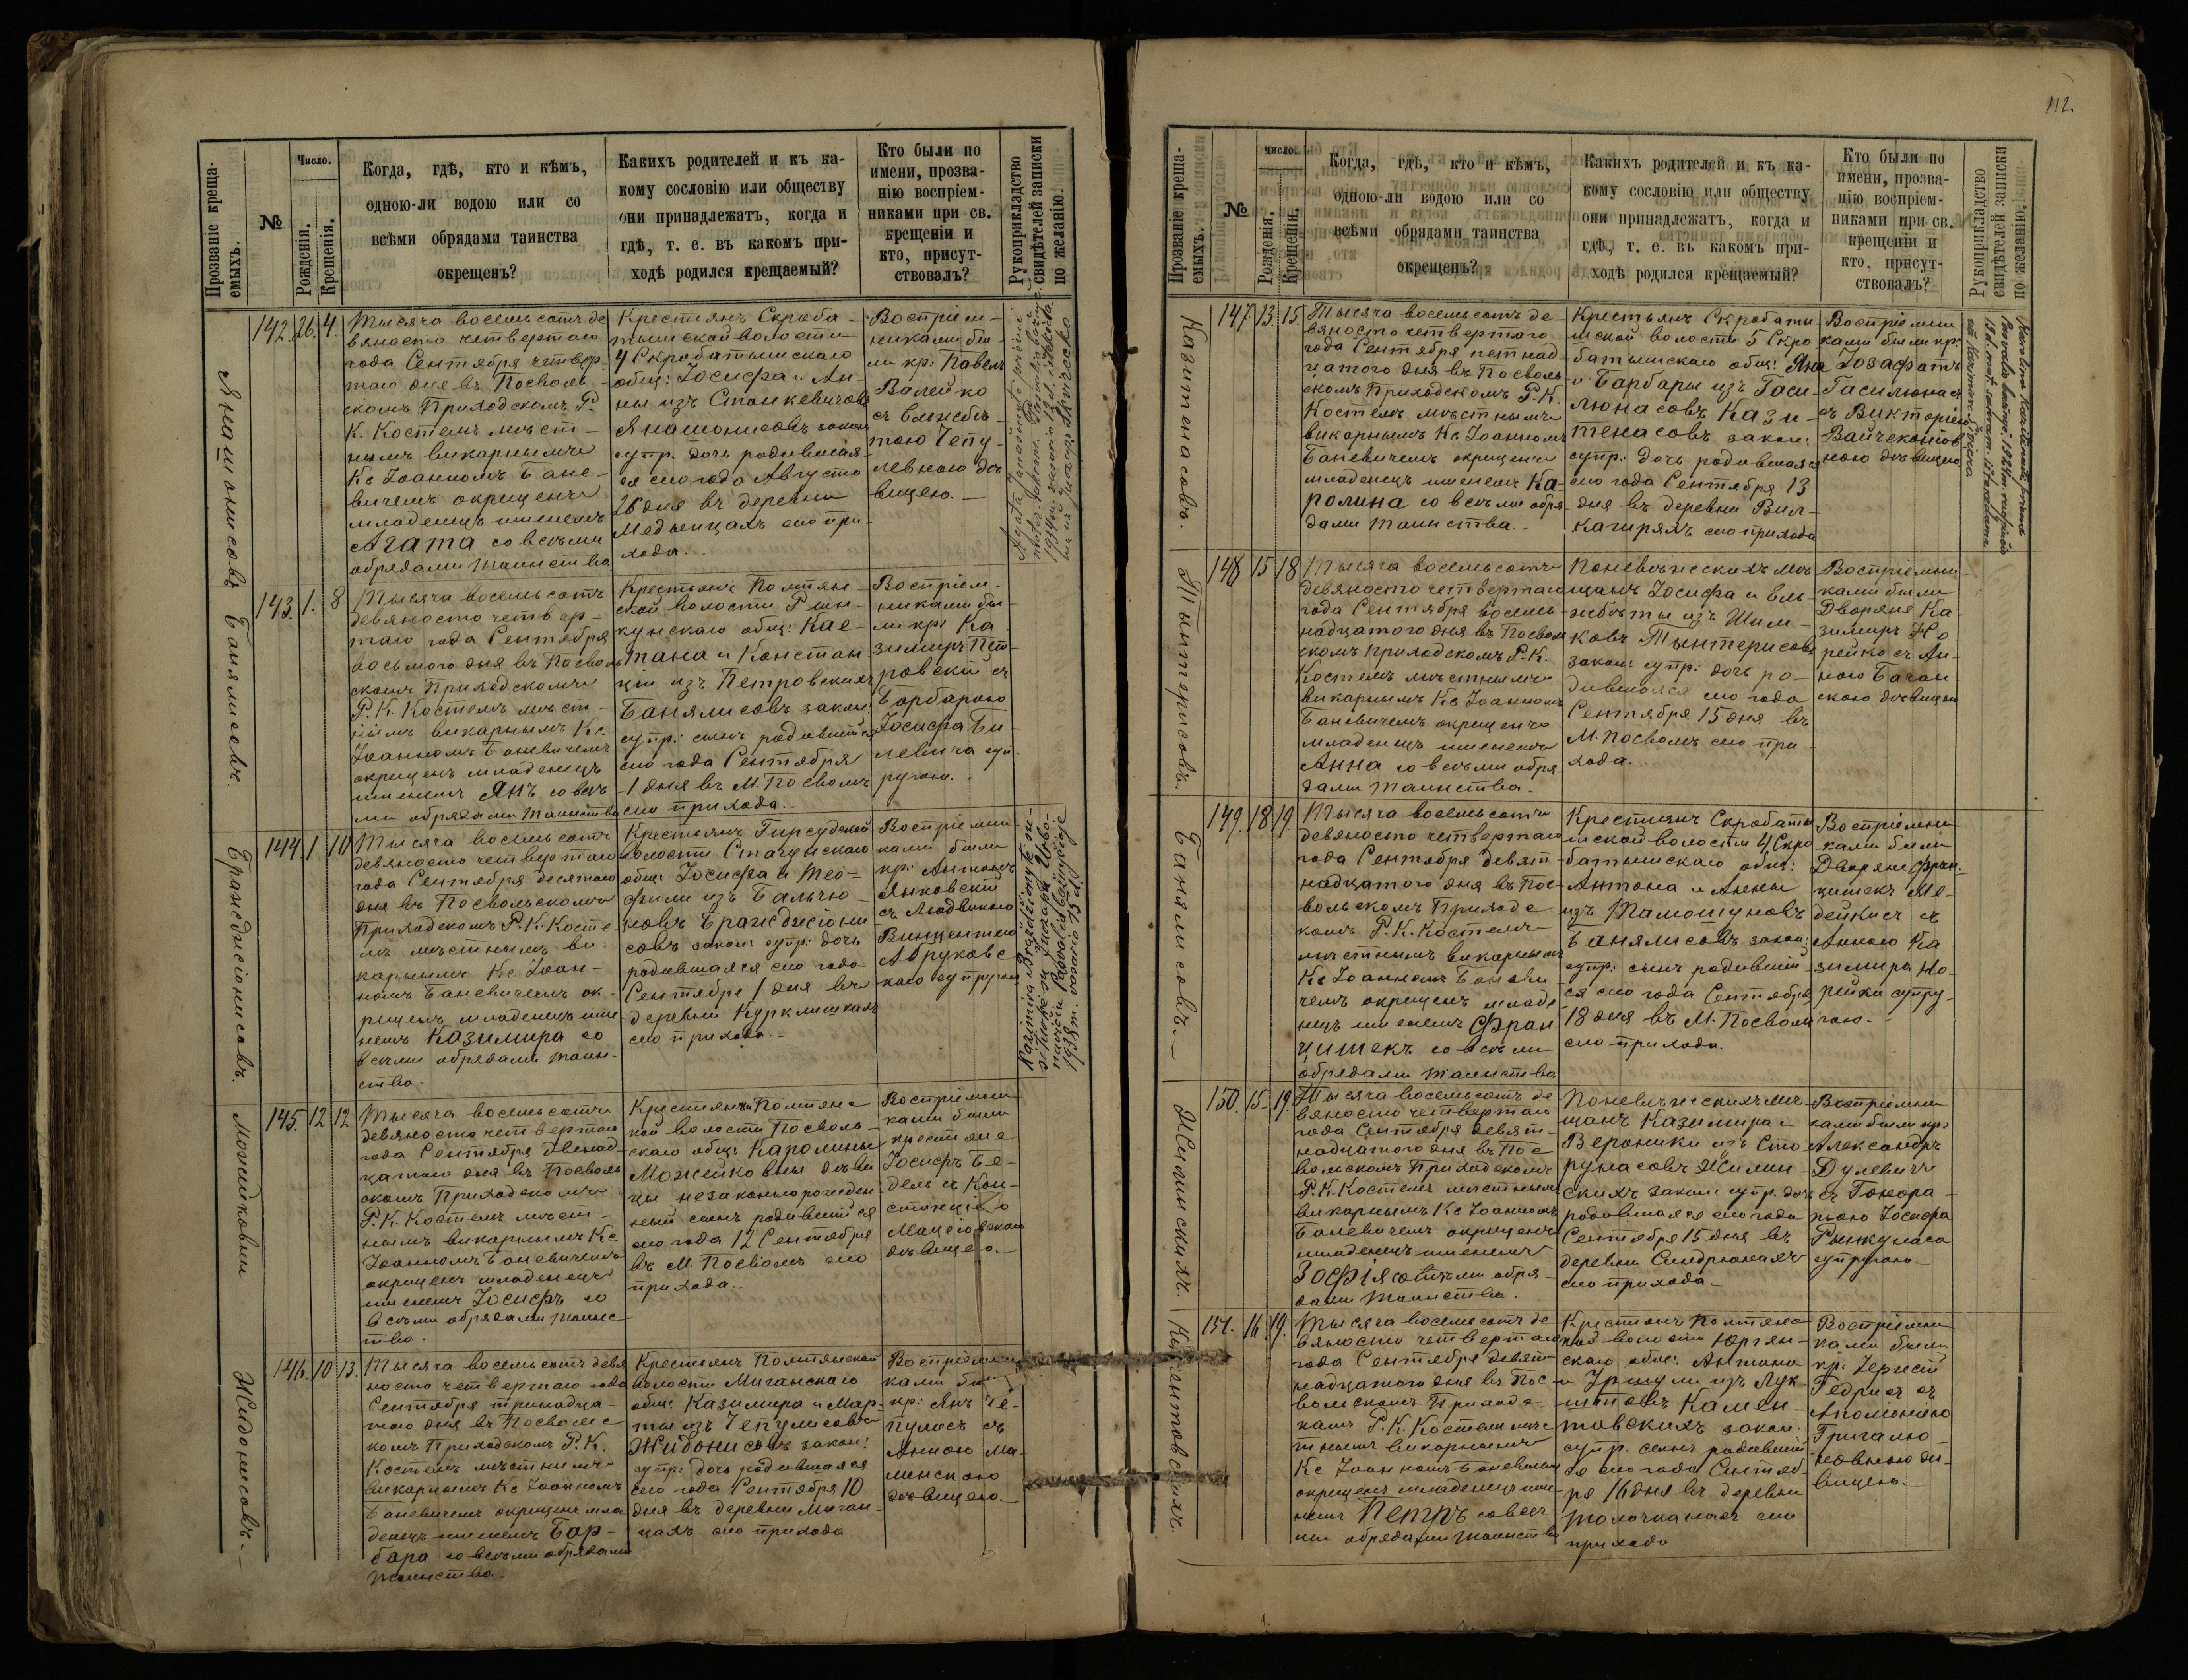 112.
Прозваніе креща-
емыхъ.
№
Число.
Рожденія.
Крещенія.
Когда, гдѣ, кто и кѣмъ,
одною-ли водою или со
всѣми обрядами таинства
окрещенъ?
Какихъ родителей и къ ка-
кому сословію или обществу
они принадлежатъ, когда и
гдѣ, т. е. въ какомъ при-
ходѣ родился крещаемый?
Кто были по
имени, прозва-
нію воспріем-
никами при св.
крещеніи и
кто, присут-
ствовалъ?
Рукоприкладство
свидѣтелей записки
по желанію.
Янашонисовъ
142. 26. 4.
Тысяча восемьсотъ де
вяносто четвертаго
года Сентября четвер-
таго дня въ Посволь-
скомъ Приходскомъ Р.
К. Костелѣ мѣст-
нымъ викарнымъ
Кс Іоанномъ Бане-
вичемъ окрещенъ
младенецъ именемъ
Агата со всѣми
обрядами таинства
Крестьянъ Скроба-
тышской волости
4 Скробатышскаго
общ: Іосифа и Ан-
ны изъ Станкевичовъ
Янашонисовъ закон
супр. дочь родившая-
ся сего года Августа
26 дня въ деревни
сего при-
хода.
Воспріем-
никами бы-
ли кр: Павелъ
Валейко
съ Елисабѣ-
тою Чепу-
левною дѣ-
вицею.
Банялисовъ.
143. 1. 8
Тысяча восемьсотъ
девяносто четвер-
таго года Сентября
восьмого дня въ Посволь
скомъ Приходскомъ
Р. К. Костелѣ мѣст-
нымъ викарнымъ Кс.
Іоанномъ Баневичемъ
окрещенъ младенецъ
именемъ Янъ со всѣ-
ми обрядами таинства
Крестьянъ Помпян-
ской волости Рин-
кунскаго общ: Кае-
тана и Констан
ціи изъ Петровскихъ
Банялисовъ закон:
супр: сынъ родившійся
сего года Сентября
1 дня въ М. Посволѣ
сего прихода.
Воспріем-
никами бы-
ли кр: Ка
зимиръ Пет-
ровскій съ
Барбарою
Іосифа Би-
левича суп-
ругою.
Бражджіонисовъ.
144. 1 10
Тысяча восемьсотъ
девяносто четвертаго
года Сентября десятаго
дня въ Посвольскомъ
Приходскомъ Р. К. Косте
лѣ мѣстнымъ ви-
карнымъ Кс Іоан-
номъ Баневичемъ ок-
рещенъ младенецъ име
немъ Казимира со
всѣми обрядами таин-
ства.
Крестьянъ Гирсудской
волости Стачунскаго
общ: Іосифа и Тео-
фили изъ Бальчю-
новъ Бражджіони
совъ закон: супр: дочь
родившаяся сего года
Сентября 1 дня въ
деревни Куркли́шкахъ
сего прихода.
Воспріемни-
ками были
кр: Антонъ
Янковскій
съ Людвикою
Винцентаго
Авруковс
каго супругою
Можейковны
145. 12 12
Тысяча восемьсотъ
девяносто четвертаго
года Сентября двѣнад-
цатаго дня въ Посволь
скомъ Приходскомъ
Р. К. Костелѣ мѣст-
нымъ викарнымъ Кс
Іоанномъ Баневичемъ
окрещенъ младенецъ
именемъ Іосифъ со
всѣми обрядами таинс-
тва.
Крестьянки Помпянс
кой волости Посволь-
скаго общ: Каролины
Можейковны дѣви
цы незаконнорожден-
ный сынъ родившійся
сего года 12 Сентября
въ М. Посволѣ сего
прихода.
Воспріемни
ками были
крестьяне
Іосифъ Бе-
деле съ Кон-
станціею
Маціовскою
дѣвицею.
Жидонисовъ.
146. 10 13.
Тысяча восемьсотъ девя
носто четвертаго года
Сентября тринадца-
таго дня въ Посвольс
комъ Приходскомъ Р. К.
Костелѣ мѣстнымъ
викарнымъ Кс Іоанномъ
Баневичемъ окрещенъ мла
денецъ именемъ Бар-
бара со всѣми обрядами
таинства.
Крестьянъ Помпянской
волости Миганскаго
общ: Казимира и Мар-
ты изъ Чепулисовъ
Жидонисовъ закон:
супр: дочь родившаяся
сего года Сентября 10
дня въ деревни Миган-
цахъ сего прихода
Воспріемни
ками были
кр: Янъ Че-
пулисъ съ
Анною Ма-
линскою
дѣвицею.
Прозваніе креща-
емыхъ.
№
Число.
Рожденія.
Крещенія.
Когда, гдѣ, кто и кѣмъ,
одною-ли водою или со
всѣми обрядами таинства
окрещенъ?
Какихъ родителей и къ ка-
кому сословію или обществу
они принадлежатъ, когда и
гдѣ, т. е. въ какомъ при-
ходѣ родился крещаемый?
Кто были по
имени, прозва-
нію воспріем-
никами при св.
крещеніи и
кто, присут-
ствовалъ?
Рукоприкладство
свидѣтелей записки
по желанію.
Казитенасовъ.
147. 13. 15.
Тысяча восемьсотъ де-
вяносто четвертаго
года Сентября пятнад-
цатаго дня въ Посволь
скомъ Приходскомъ Р. К.
Костелѣ мѣстнымъ
викарнымъ Кс Іоанномъ
Баневичемъ окрещенъ
младенецъ именемъ Ка-
ролина со всѣми обря-
дами таинства.
Крестьянъ Скробаты-
шской волости 5 Скро
батышскаго общ: Яна
и Барбары изъ Гаси-
люнасовъ Кази-
тенасовъ закон:
супр: дочь родившаяся
сего года Сентября 13
дня въ деревни Вил-
кагиряхъ сего прихода
Воспріемни
ками были кр:
Іозафатъ
Гасилюнасъ
съ Викторіею
дѣвицею
Тынтерисовъ.
148 15 18
Тысяча восемьсотъ
девяносто четвертаго
года Сентября восемь-
надцатого дня въ Посволь
скомъ Приходскомъ Р. К.
Костелѣ мѣстнымъ
викарнымъ Кс Іоанномъ
Баневичемъ окрещенъ
младенецъ именемъ
Анна со всѣми обря
дами таинства.
Поневѣжескихъ мѣ
щанъ Іосифа и Ели-
жбѣты изъ Шим-
ковъ Тынтерисовъ
закон: супр: дочь ро-
дившаяся сего года
Сентября 15 дня въ
М. Посволѣ сего при-
хода.
Воспріемни-
ками были
Дворяне Ка-
зимиръ Но
рейко съ Ан-
ною Баган
скою дѣвицею
Банялисовъ.
149. 18. 19.
Тысяча восемьсотъ
девяносто четвертаго
года Сентября девят-
надцатаго дня въ Пос-
вольскомъ Приходс
комъ Р. К. Костелѣ
мѣстнымъ викарнымъ
Кс Іоанномъ Баневи
чемъ окрещенъ младе
нецъ именемъ Фран
цишекъ со всѣми
обрядами таинства
Крестьянъ Скробаты
шской волости 4 Скро
батышскаго общ:
Антона и Анны
изъ Тамошуновъ
Банялисовъ закон:
супр: сынъ родившій-
ся сего года Сентября
18 дня въ М. Посволѣ
сего прихода.
Воспріемни
ками были
Дворяне Фран-
цишекъ Ме-
дейкисъ съ
Анною Ка
зимира Но-
рейки супру-
гою.
Жилинскихъ.
150. 15. 19.
Тысяча восемьсотъ де
вяносто четвертаго
года Сентября девят-
надцатаго дня въ Пос
вольскомъ Приходскомъ
Р. К. Костелѣ мѣстнымъ
викарнымъ Кс Іоанномъ
Баневичемъ окрещенъ
младенецъ именемъ
Зофія со всѣми обря-
дами таинства.
Поневѣжескихъ мѣ-
щанъ Казимира и
Вероники изъ Сто
рунасовъ Жилин-
скихъ закон: супр. дочь
родившаяся сего года
Сентября 15 дня въ
деревни Синдрюнахъ
сего прихода
Воспріемни
ками были кр:
Александръ
Дулевичъ
съ Гонора-
тою Іосифа
Рынкунаса
супругою
Каментовскихъ.
151. 16. 19.
Тысяча восемьсотъ де-
вяносто четвертаго
года Сентября девят-
надцатаго дня въ Пос-
вольскомъ Приходс
комъ Р. К. Костелѣ мѣс
тнымъ викарнымъ
Кс Іоанномъ Баневичемъ
окрещенъ младенецъ име-
немъ Петръ со всѣ-
ми обрядами таинства
Крестьянъ Помпянс
кой волости Юргян-
скаго общ: Антона
и Уршули изъ Лук-
Камен-
товскихъ закон:
супр. сынъ родивший
ся сего года Сентяб-
ря 16 дня въ деревни
Толочканахъ сего
прихода
Воспріемни
ками были
кр:
Гедрисъ съ
Аполоніею
дѣ-
вицею.